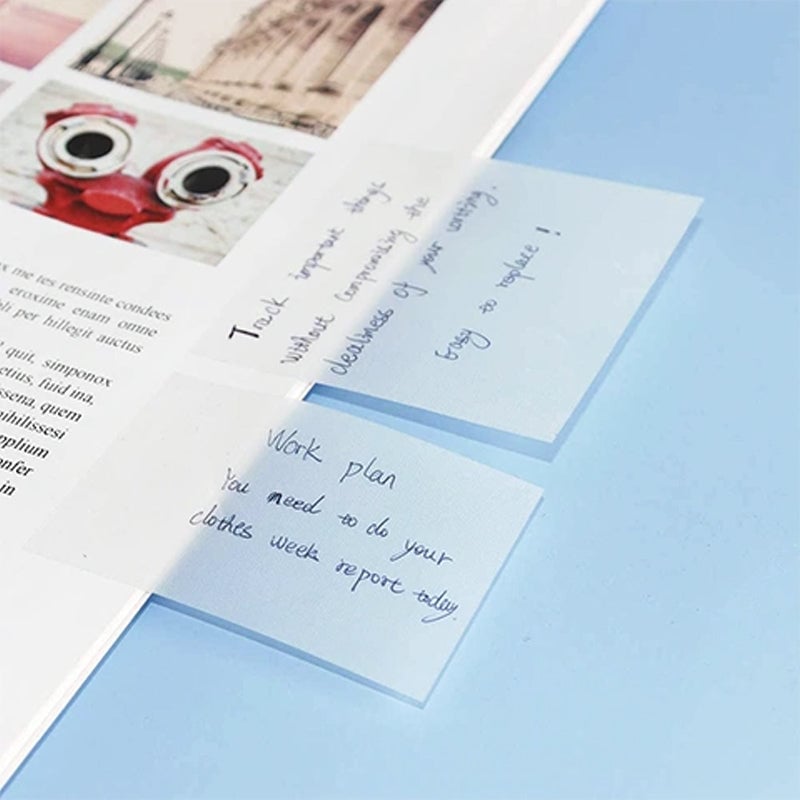 Track important things
without compromising the
clealmess of your writing.
Easy to replace!
Work plan
You need to do your
clothes week report today.
me tes rensinte condees
eroxime enam omne
per hillegit auctus
quit, simponox
fuid ina,
quem
nihilissesi
in